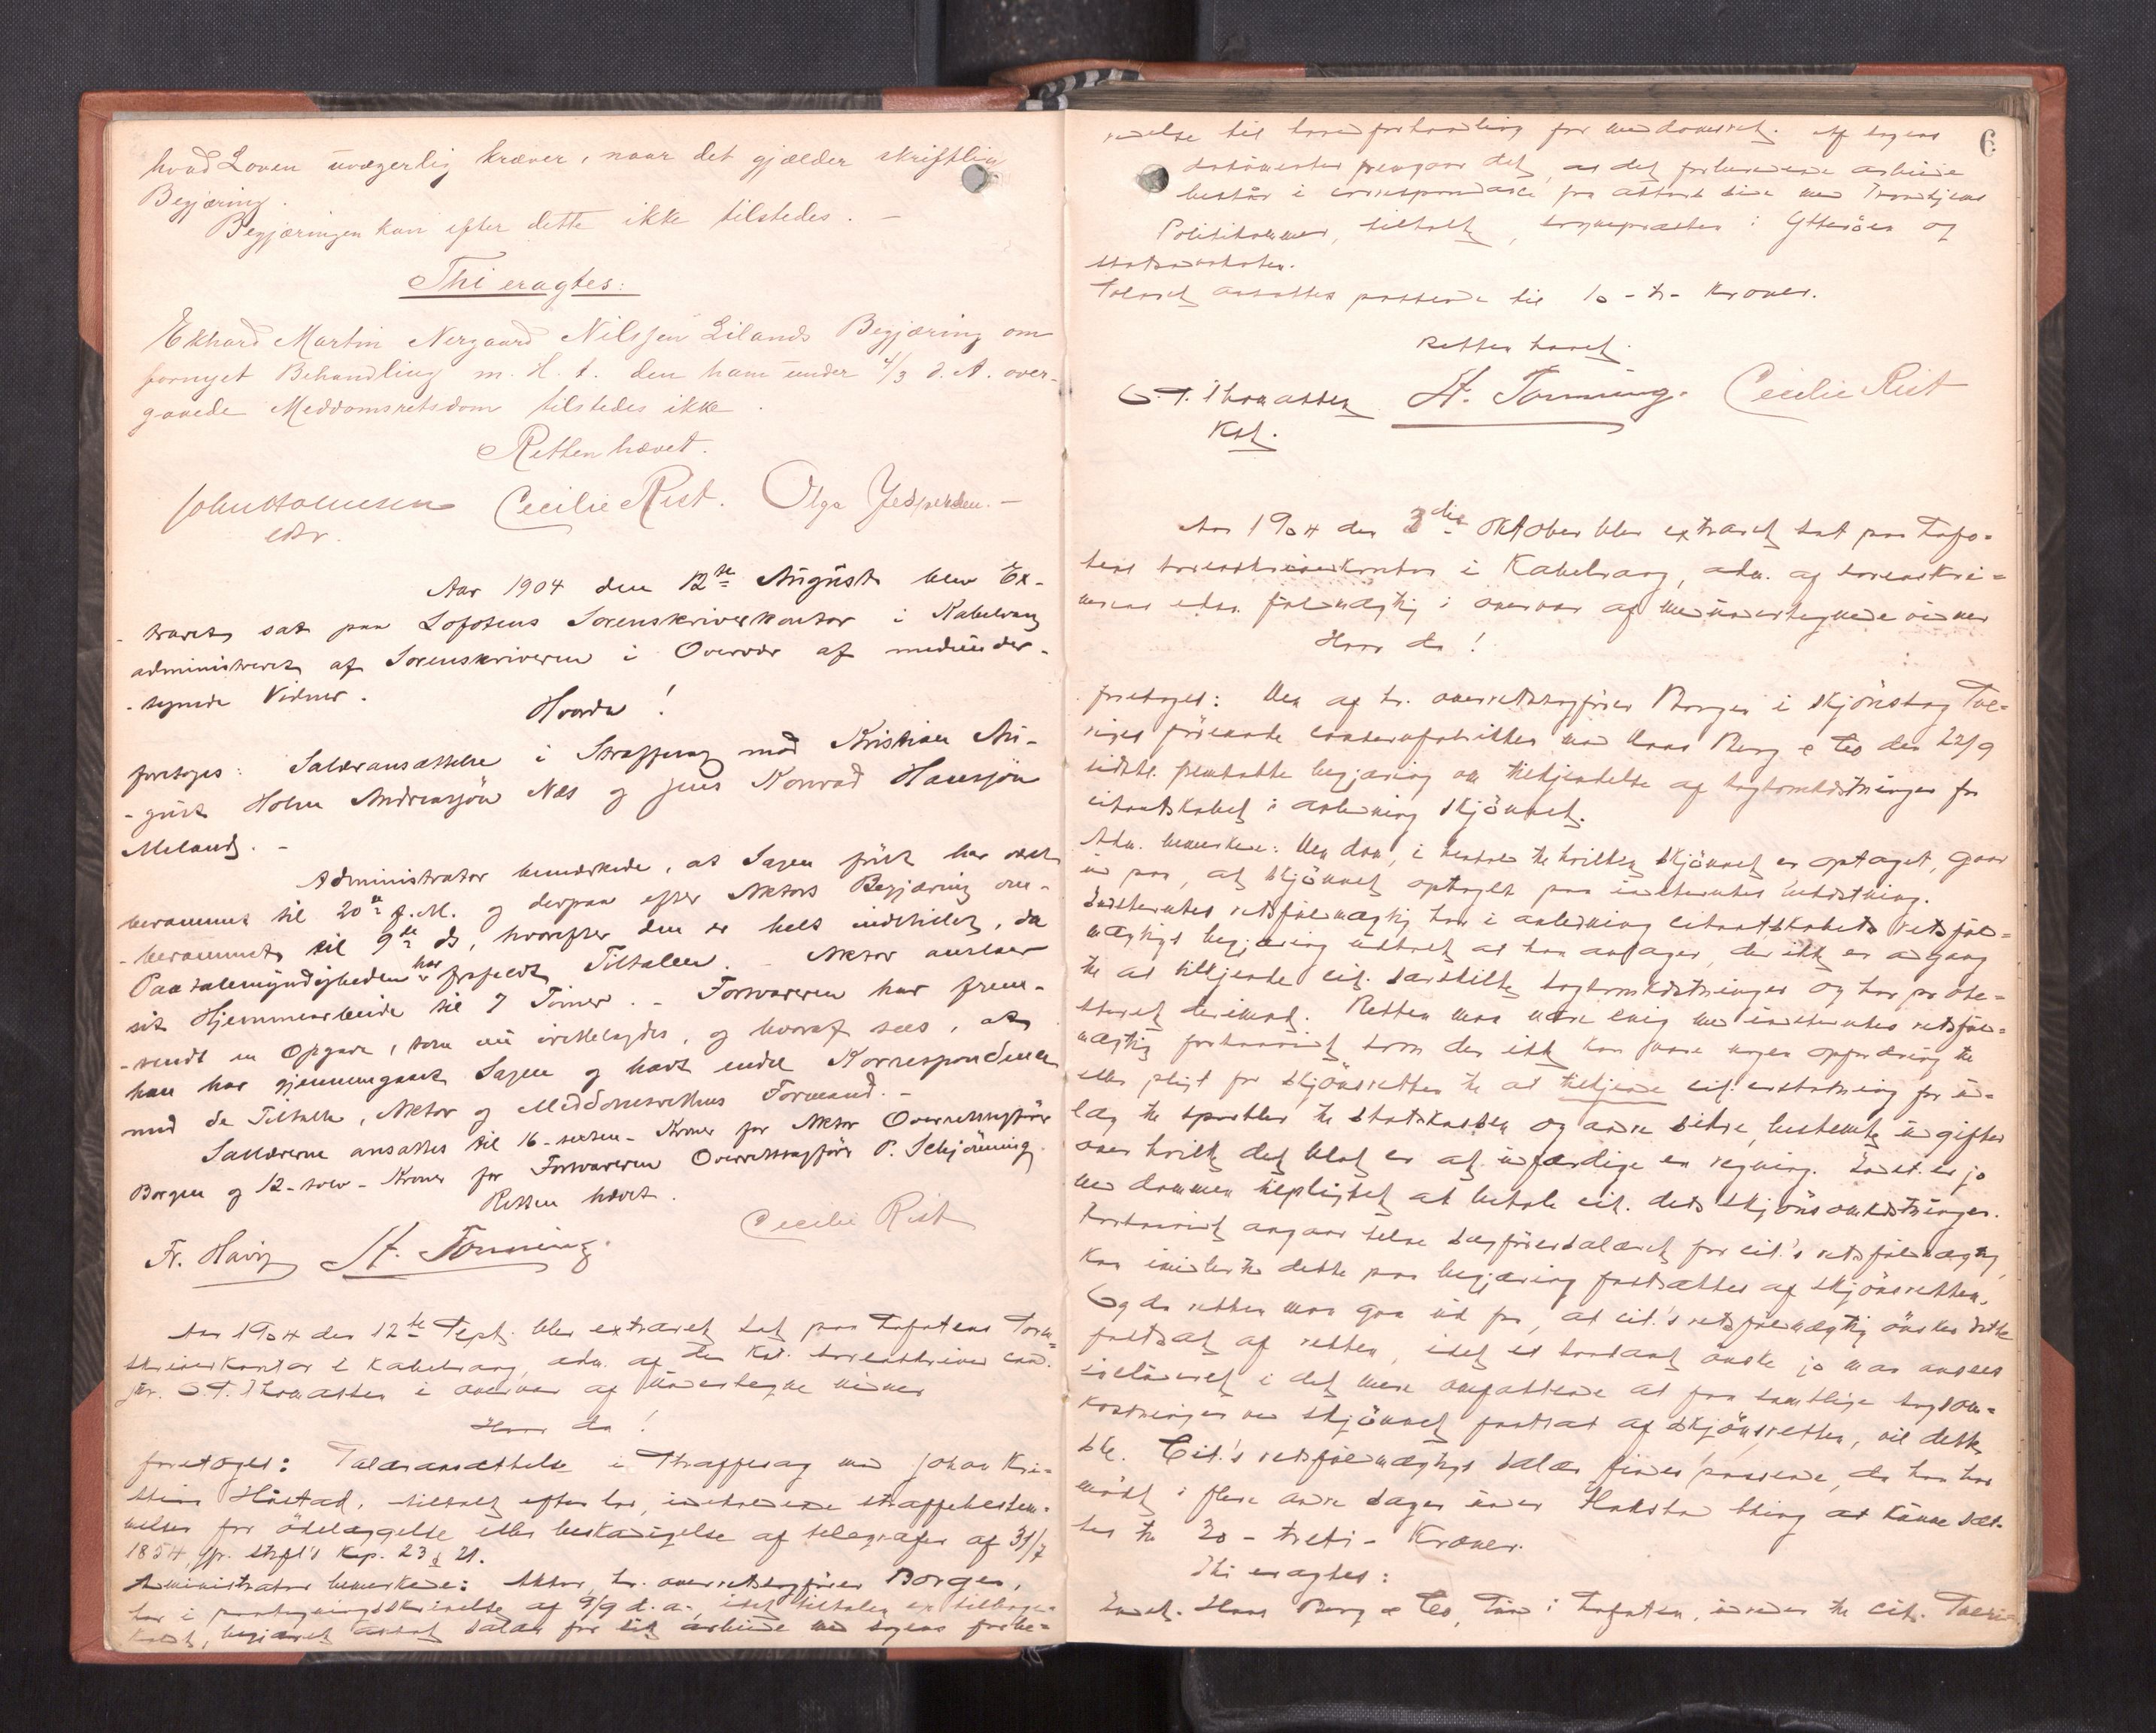 hvad Loven uvægerlig kræver, naar det gjælder skriftlig
Begjæring.
Begjæringen kan efter dette ikke tilstedes. –
Thi eragtes:
Ekhard Martin Nergaard Nilssen Lilands Begjæring om
fornyet Behandling m. H. t. den ham under 4/3 d. A. over-
gaaede Meddomsretsdom tilstedes ikke.
Retten hævet.
Cecilie Rist. Olga Jespersen. –
Aar 1904 den 12te August blev Ex-
traret sat paa Lofotens Sorenskriverkontor i Kabelvaag
administreret af Sorenskriveren i Overvær af medunder-
tegnede Vidner.
Hvorda!
foretoges: Salæransættelse i Straffesag mod Kristian Au-
gust Holm Andreassøn Næs og Jens Konrad Hanssøn
Meland. –
Administrator bemærkede, at Sagen først har været
berammet til 20de f. M. og derpaa efter Aktors Begjæring om-
berammet til 9de ds, hvorefter den er helt indstillet, da
Paatalemyndigheden har frafaldt Tiltalen. – Aktor anslaar
sit Hjemmearbeide til 7 Timer. – Forsvareren har frem-
sendt en Opgave, som nu irettelagdes, og hvoraf sees, at
han har gjennemgaaet Sagen og havt endel Korrespondence
med de Tiltalte, Aktor og Meddomsrettens Formand. –
Salærerne ansattes til 16 - sexten - Kroner for Aktor Overretssagfører
Borgen og 12 - tolv - Kroner for Forsvareren Overretssagfører P. Schjønning.
Retten hævet.
Fr. Havig St. Tønning. Cecilie Rist
Aar 1904 den 12te Sept. blev extraret sat paa Lofotens Soren-
skriverkontor i Kabelvaag, adm. af den Kst. sorenskriver cand.
jur. O. T. Thomassen i overvær af undertegnede vidner
Hvor da!
foretoges: Salæransættelse i Straffesag mod Johan Kri-
stian Hustad, tiltalt efter lov, indeholdende straffebestem-
melser for ødelæggelse eller beskadigelse af telegrafer af 31/7
1854, jfr. strfl's kap. 23 § 21.
Administrator bemerkede: Aktor, hr. overretssagfører Borgen,
har i paategningsskrivelse af 9/9 d. a., idet tiltalen er tilbage-
kaldt, begjæret ansat salær for sit arbeide med sagens forbe-
6
redelse til hovedforhandling for meddomsret. Af sagens
dokumenter fremgaar det, at det forberedende arbeide
består i correspondance fra aktors side med Trondhjems
Politikammer, tiltalte, sognepræsten i Ytterøen og
statsadvokaten.
Salæret ansattes passende til 10 - ti - kroner.
Retten hævet.
O. T. Thomassen St. Tønning. Cecilie Rist
Kst.
Aar 1904 den 3die Oktober blev extraret sat paa Lofo-
tens sorenskriverkontor i Kabelvaag, adm. af sorenskri-
verens edsv. fuldmægtig i overvær af medundertegnede vidner
Hvor da!
foretoges: Den af hr. overretssagfører Borgen i skjønssag
forenede conservefabrikker mod Hans Berg & Co den 22/9
sidstl. fremsatte begjæring om tilkjendelse af sagsomkostninger for
citantskabet i anledning skjønnet.
Adm. bemerkede: Den dom, i henhold til hvilken skjønnet er optaget, gaar
ud paa, at skjønnet optages paa indstevntes bekostning.
Indstevntes retsfuldmægtig har i anledning citantskabets retsfuld-
mægtigs begjæring udtalt at han antager, der ikke er adgang
til at tilkjende cit. særskilte sagsomkostninger og har prote-
steret derimod. Retten maa være enig med indstevntes retsfuld-
mægtig forsaavidt som der ikke kan være nogen opfordring til
eller pligt for skjønsretten til at tilkjende cit. erstatning for ud-
læg til sportler til statskassen og andre sikre, bestemte udgifter
over hvilke det blot er at udfærdige en regning. Indst. er jo
ved dommen tilpligtet at betale cit. dets skjønsomkostninger.
Forsaavidt angaar selve sagførersalæret for cit.'s retsfuldmægtig,
kan imidlertid dette paa begjæring fastsættes af skjønsretten.
Og da retten maa gaa ud fra, at cit.'s retsfuldmægtig ønsker dette
fastsat af retten, idet et saadant ønske jo maa ansees
inkluderet i det mere omfattende at faa samtlige sagsom-
kostninger ved skjønnet fastsat af skjønsretten, vil dette
ske. Cit.'s retsfuldmægtigs salær findes passende, da han har
mødt i flere andre sager under Hadsel thing at kunne sæt-
tes til 30 - treti - Kroner.
Thi eragtes:
Indst. Hans Berg & Co, i Lofoten, udreder til cit.